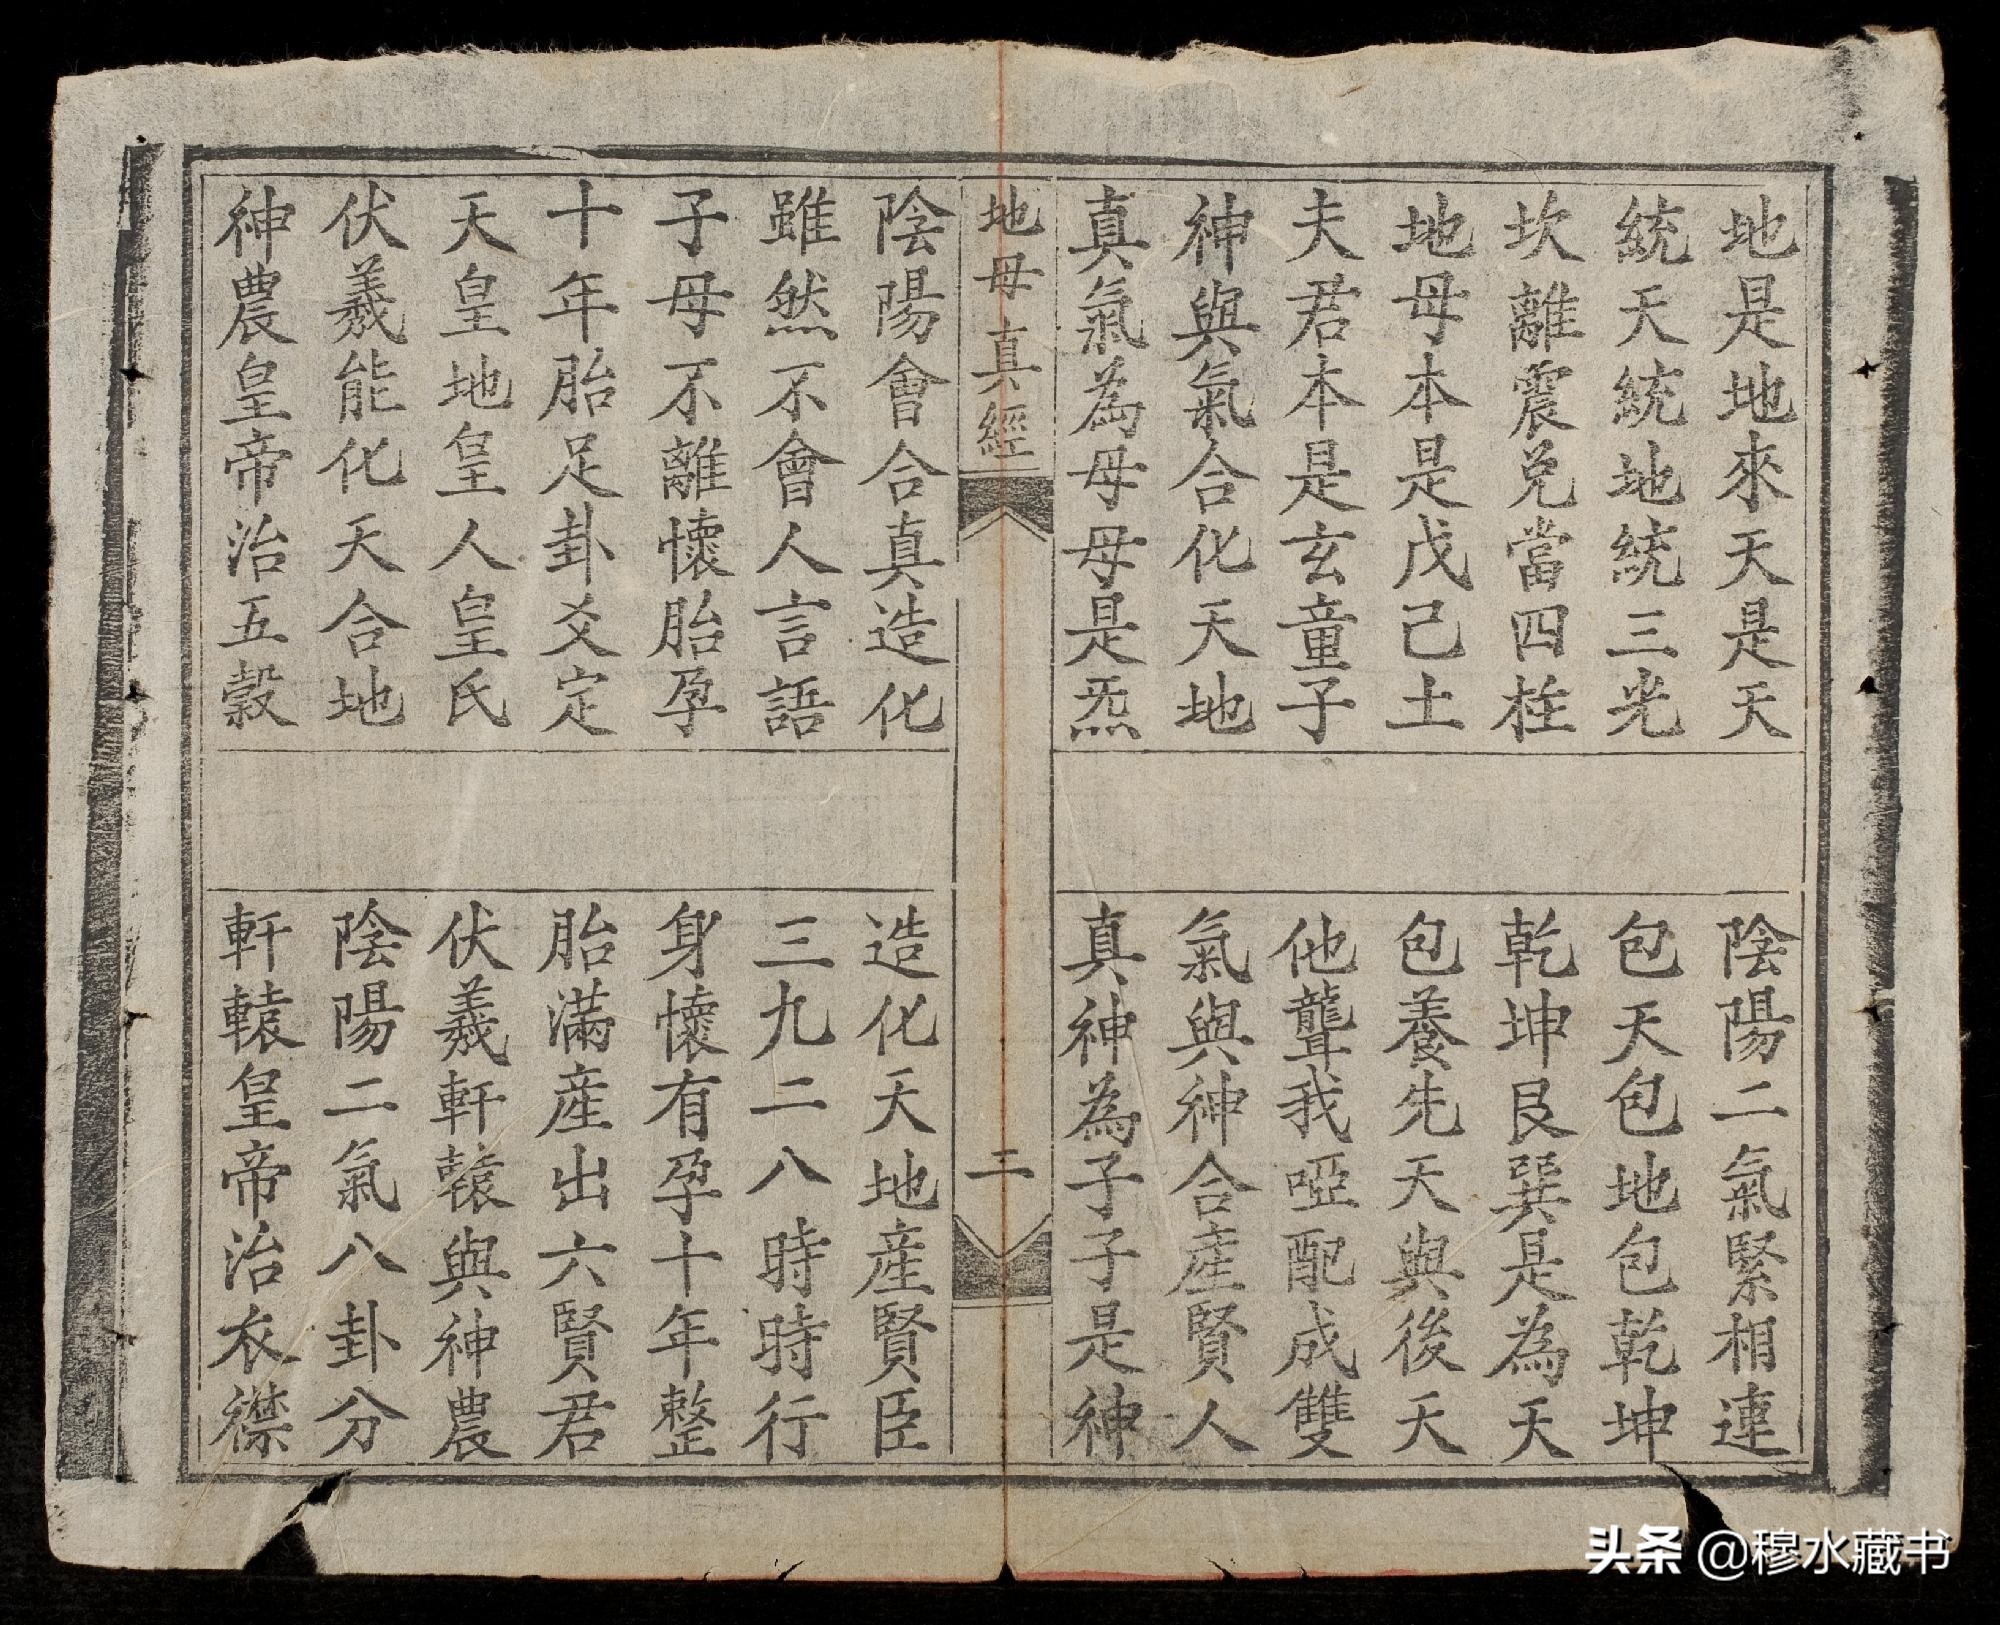 地是地來天是天
陰陽二氣緊相連
統天統地統三光
包天包地包乾坤
坎離震兌當四柱
乾坤艮巽是為天
地母本是戊己土
包養先天與後天
夫君本是玄童子
他聾我啞配成雙
神與氣合化天地
氣與神合產賢人
真氣為母母是炁
真神為子子是神
地母真經
二
陰陽會合真造化
造化天地產賢臣
雖然不會人言語
三九二八時時行
子母不離懷胎孕
身懷有孕十年整
十年胎足卦爻定
胎滿產出六賢君
天皇地皇人皇氏
伏羲軒轅與神農
伏羲能化天合地
陰陽二氣八卦分
神農皇帝治五穀
軒轅皇帝治衣襟
头条 @穆水藏书